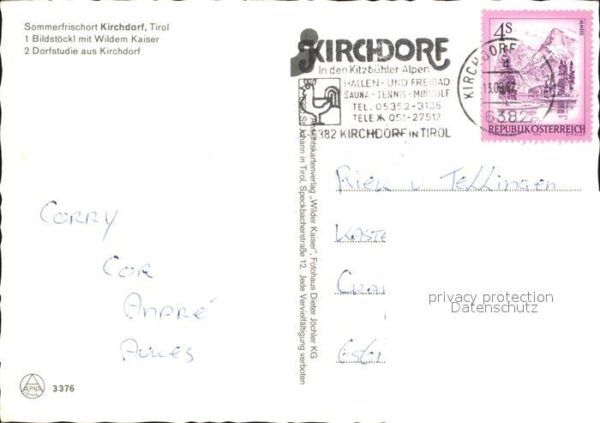 Sommerfrischort Kirchdorf, Tirol
1 Bildstöckl mit Wildem Kaiser
2 Dorfstudie aus Kirchdorf
KIRCHDORF
in den Kitzbühler Alpen
HALLEN- UND FREIBAD
SAUNA - TENNIS - MINIGOLF
TEL. 05352-3136
TELEX 051-27517
6382 KIRCHDORF IN TIROL
KIRCHDORF
6382
4S
REPUBLIK ÖSTERREICH
Ansichtskartenverlag „Wilder Kaiser", Fotohaus Dieter Jöchler KG
St. Johann in Tirol, Speckbacherstraße 12. Jede Vervielfältigung verboten
Corry
Cor
André
Riek v Tellingen
Kaste
Cra
privacy protection
Datenschutz
3376